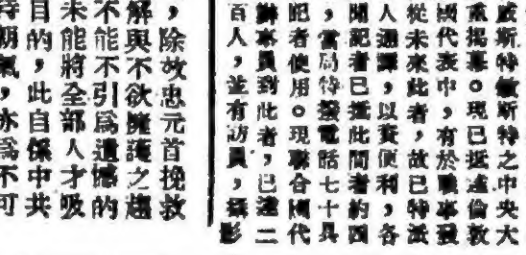 斯特敏斯特之中央大
重揭幕。現已抵達倫敦
國代表中，有於戰事發
從未來此者，故已特派
人通譯，以資便利，各
聞記者已抵此間者約四
，當局特撥電話七十具
記者使用。現聯合國代
辦事員對此者，已達二
百人，並有訪員，攝影
，除效忠元首挽救
解與不欲擁護之趨
不能不引爲遺憾的
未能將全部人才吸
目的，此自係中共
持朝氣，亦爲不可